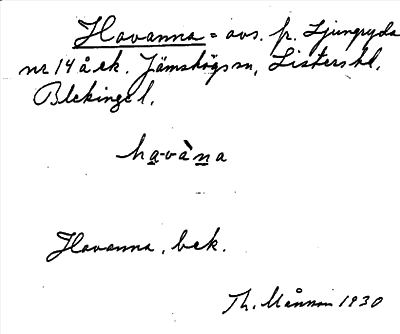 Havanna = avs. fr. Ljungryda
nr 14 å ek. Jämshögs sn, Listers hd,
Blekinge l.
havàna
Havanna, bek.
Th. Månsson 1930